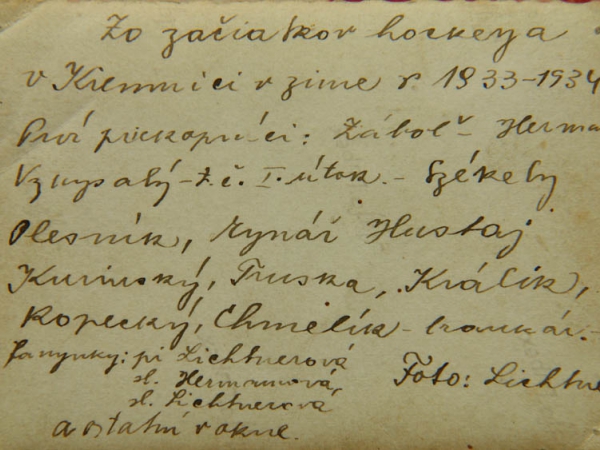 Zo začiatkov hockeya
v Kremnici v zime r. 1933-1934
Prví priekopníci: Zábolš - Herma
Vyhysalý - t.č. I. útok. - Székely
Plesník, Rynář Hustaj
Kurinský, Truska, Králik,
Kopecký, Chmelík - brankár. -
Panynky: pí Lichtnerová
sl. Hermannová,
sl. Lichtnerová
a ostatní v okne.
Foto: Lichtne